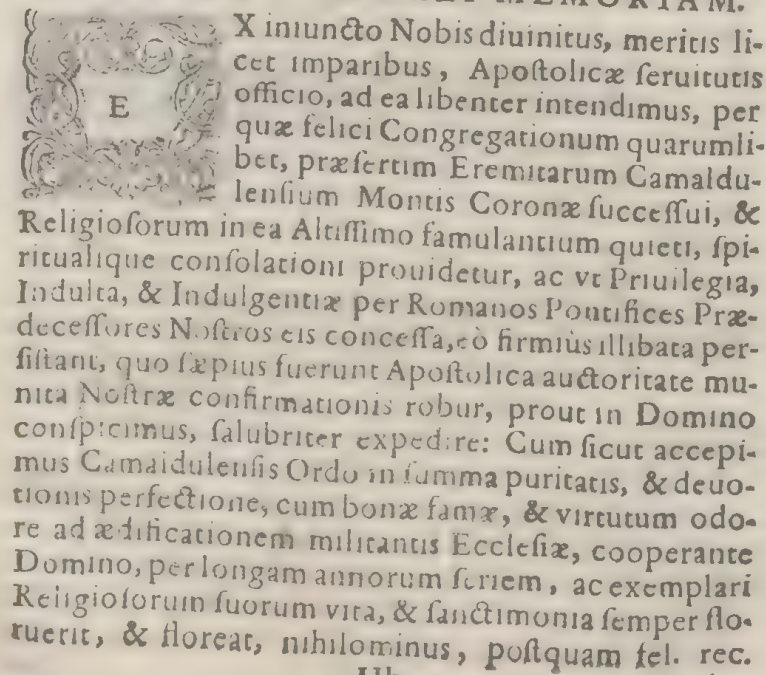 MEMORIAM.
EX iniuncto Nobis diuinitus, meritis li-
cet imparibus, Apoſtolicæ ſeruitutis
officio, ad ea libenter intendimus, per
quæ felici Congregationum quarumli-
bet, præſertim Eremitarum Camaldu-
lenſium Montis Coronæ ſucceſſui, &
Religioſorum in ea Altiſſimo famulantium quieti, ſpi-
ritualique conſolationi prouidetur, ac vt Priuilegia,
Indulta, & Indulgentiæ per Romanos Pontifices Præ-
deceſſores Noſtros eis conceſſa, eò firmiùs illibata per-
ſiſtant, quo ſæpius fuerunt Apoſtolica auctoritate mu-
nita Noſtræ confirmationis robur, prout in Domino
conſpicimus, ſalubriter expedire: Cum ſicut accepi-
mus Camaldulenſis Ordo in ſumma puritatis, & deuo-
tionis perfectione, cum bonæ famæ, & virtutum odo-
re ad ædificationem militantis Eccleſiæ, cooperante
Domino, per longam annorum ſeriem, ac exemplari
Religioſorum ſuorum vita, & ſanctimonia ſemper flo-
ruerit, & floreat, nihilominus, poſtquam fel. rec.